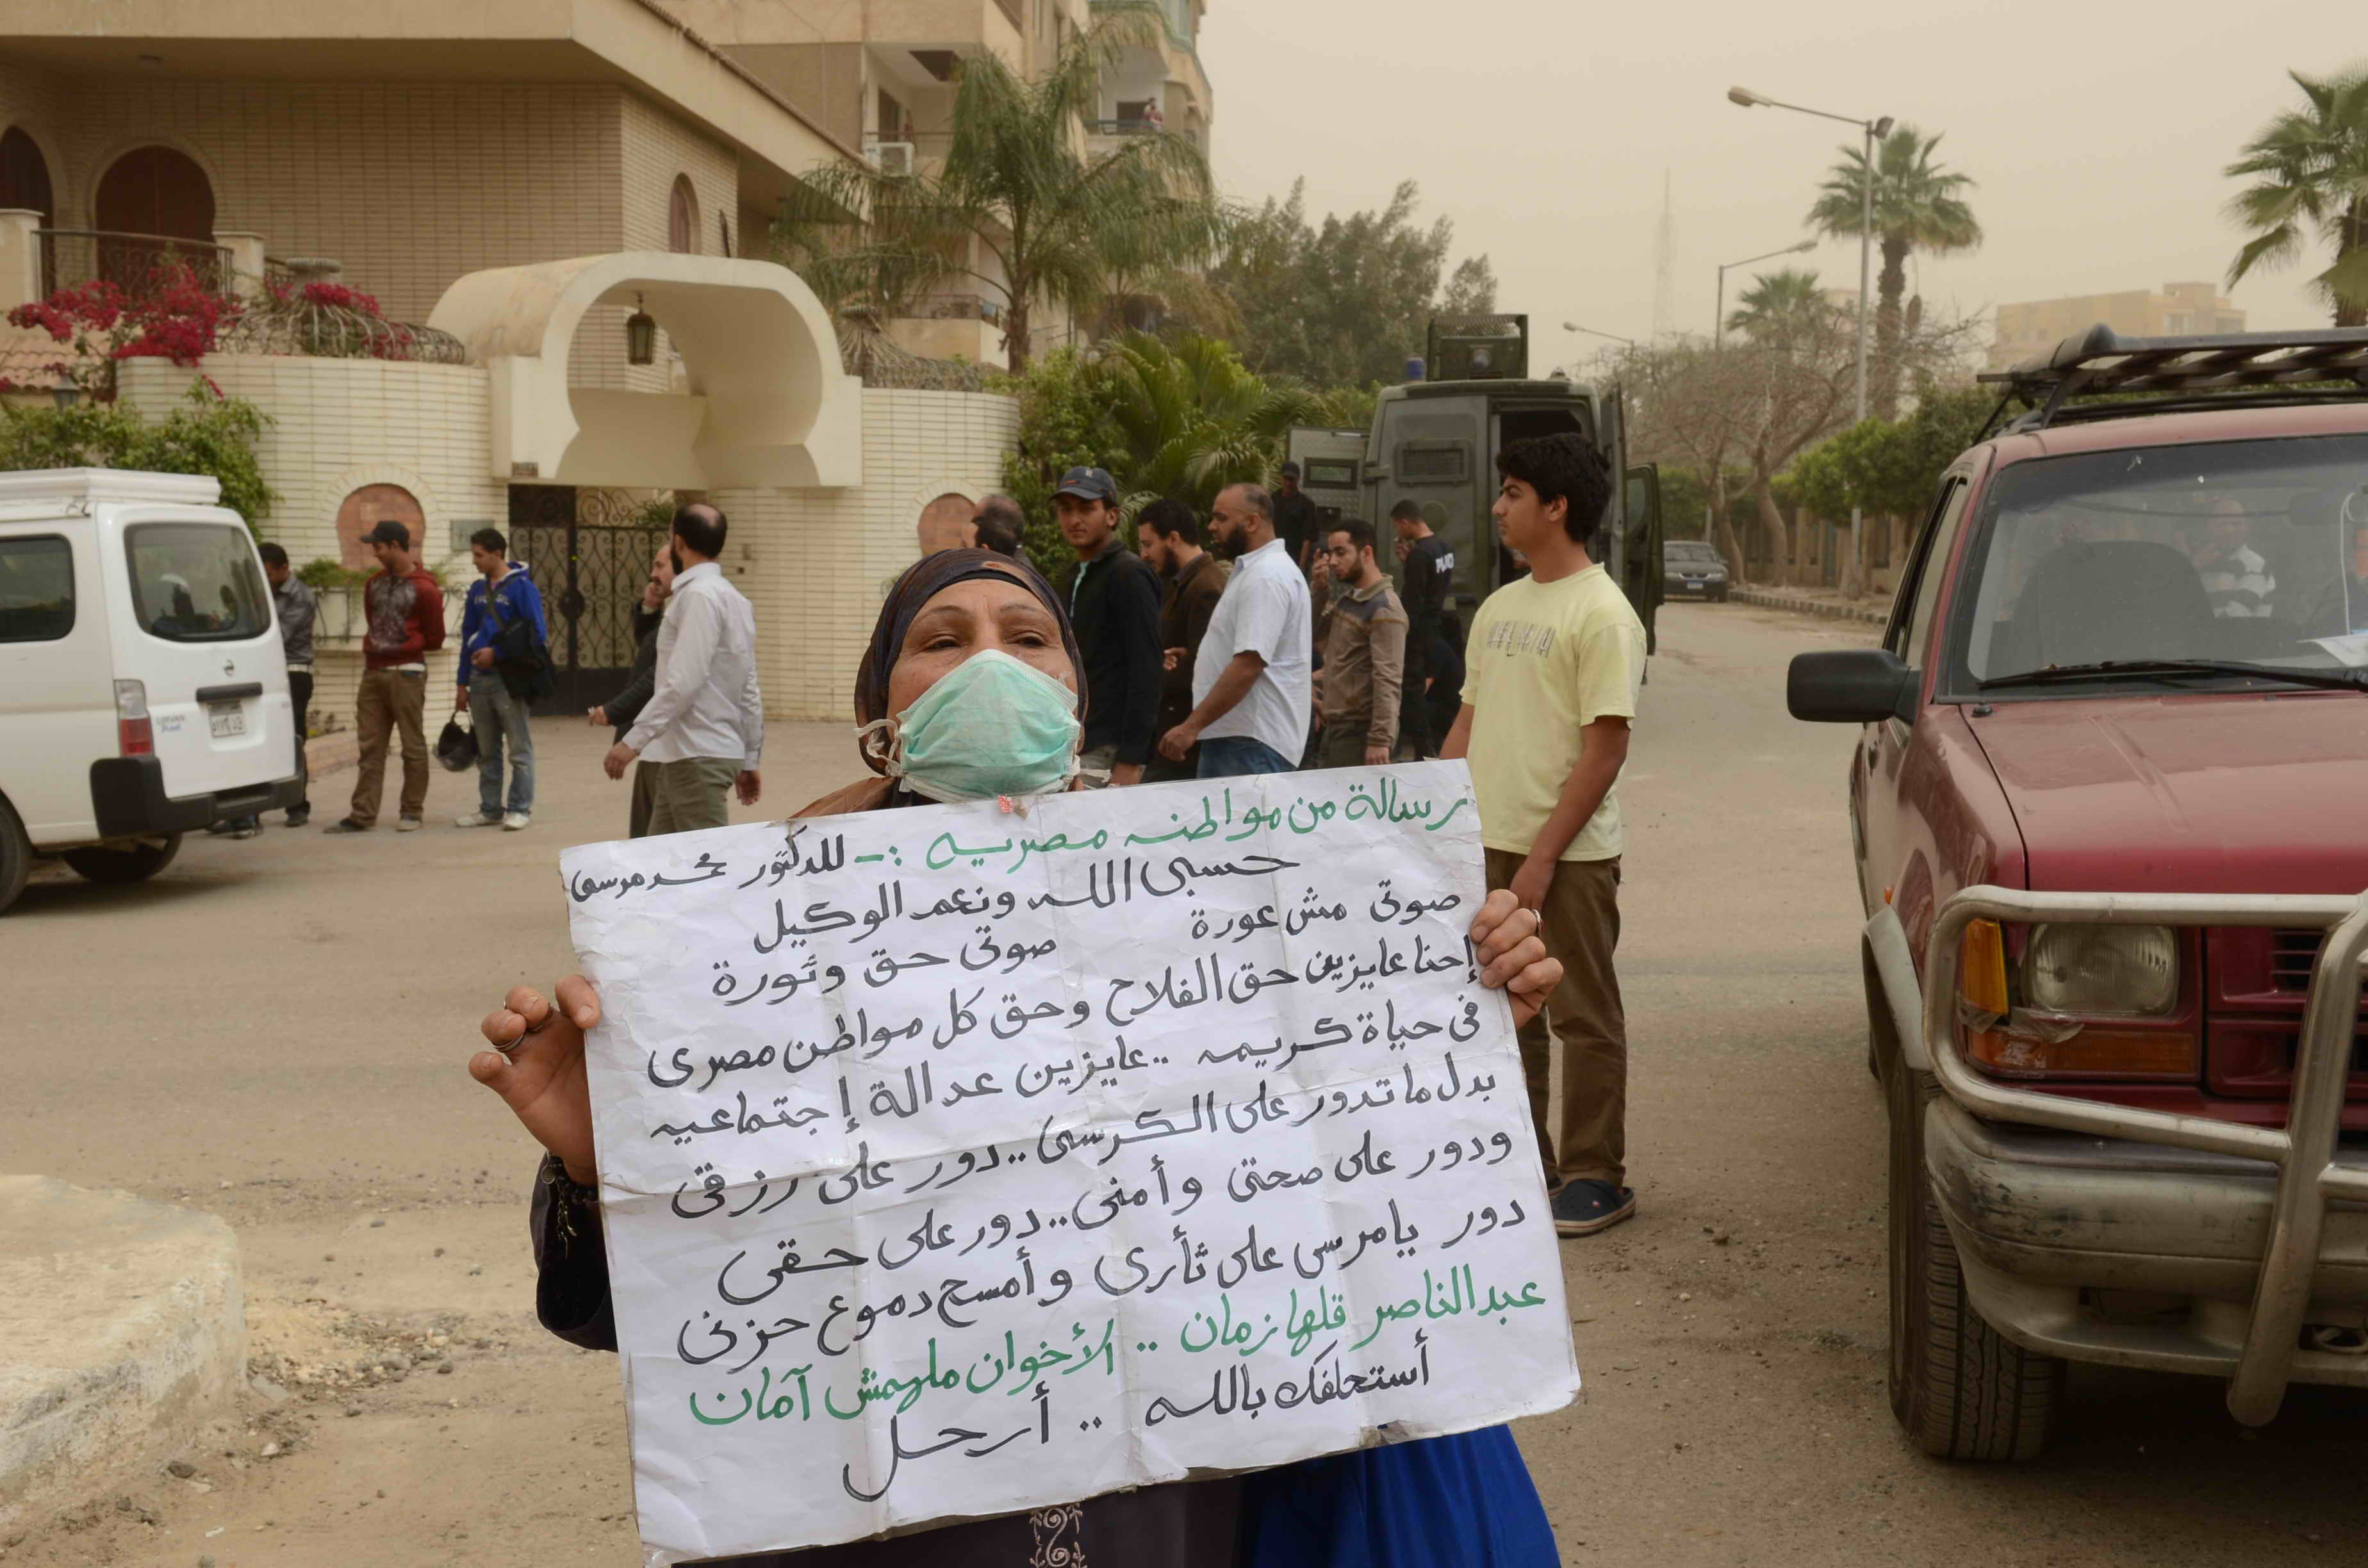 رسالة من مواطنه مصريه :- للدكتور محمد مرسى
حسبى الله ونعم الوكيل
صوتى مش عورة صوتى حق وثورة
إحنا عايزين حق الفلاح وحق كل مواطن مصرى
فى حياة كريمه .. عايزين عدالة إجتماعيه
بدل ما تدور على الكرسى .. دور على رزقى
ودور على صحتى وأمنى .. دور على حقى
دور يا مرسى على ثأرى وأمسح دموع حزنى
عبد الناصر قلها زمان .. الأخوان ملهمش آمان
أستحلفك بالله .. أرحل